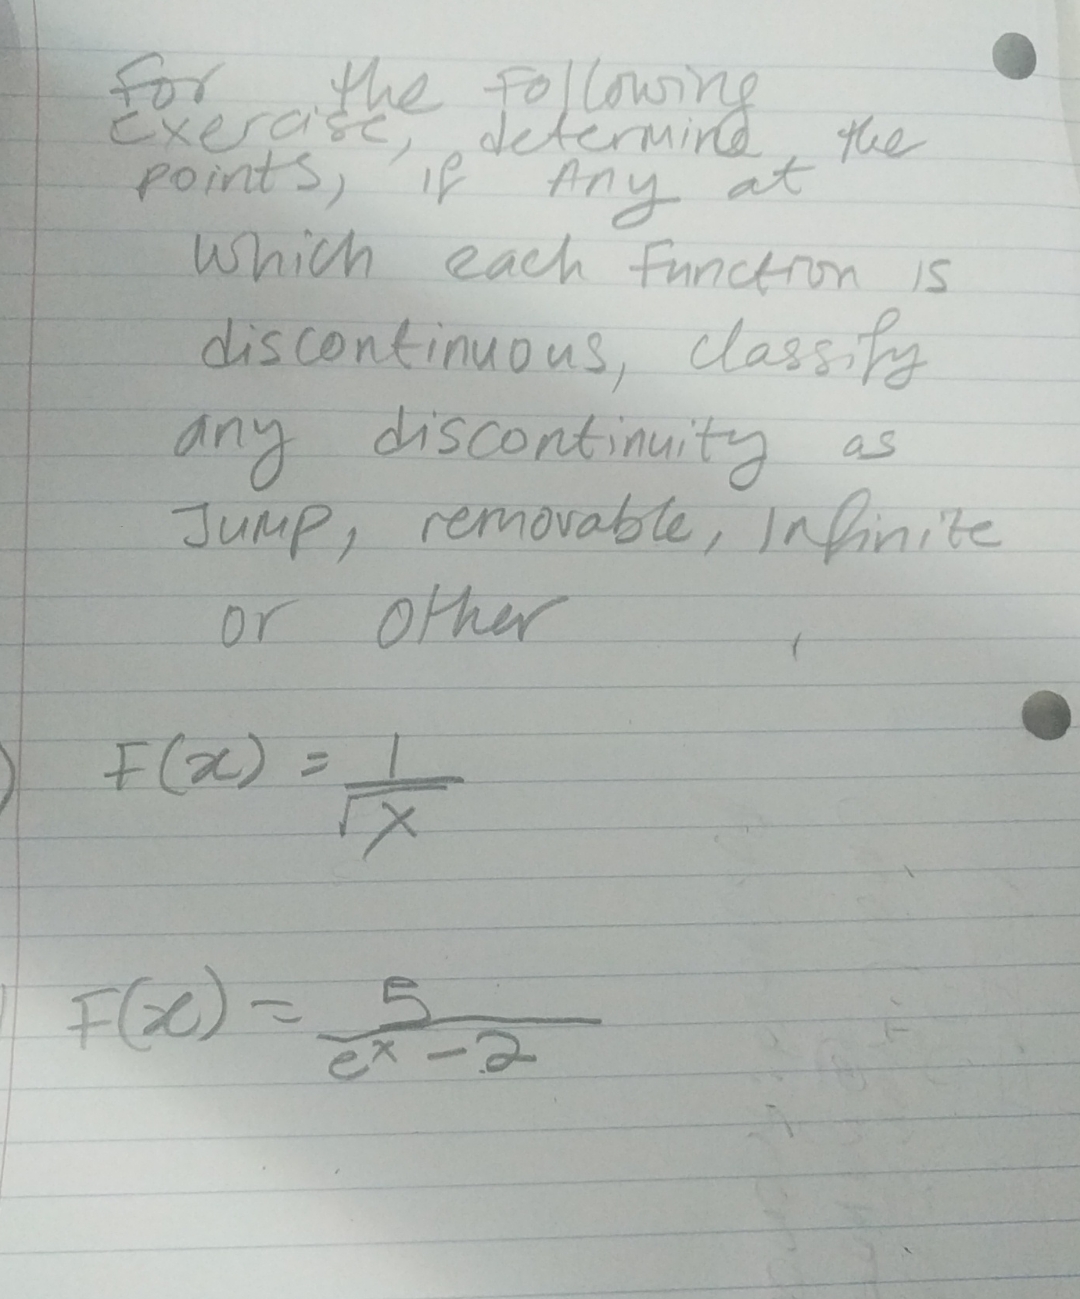 For the Following
Exercise, determine the
points, if Any at
which each function is
discontinuous, classify
any discontinuity as
Jump, removable, Infinite
or other
F(x) = 1/√x
F(x) = 5/(e^x - 2)